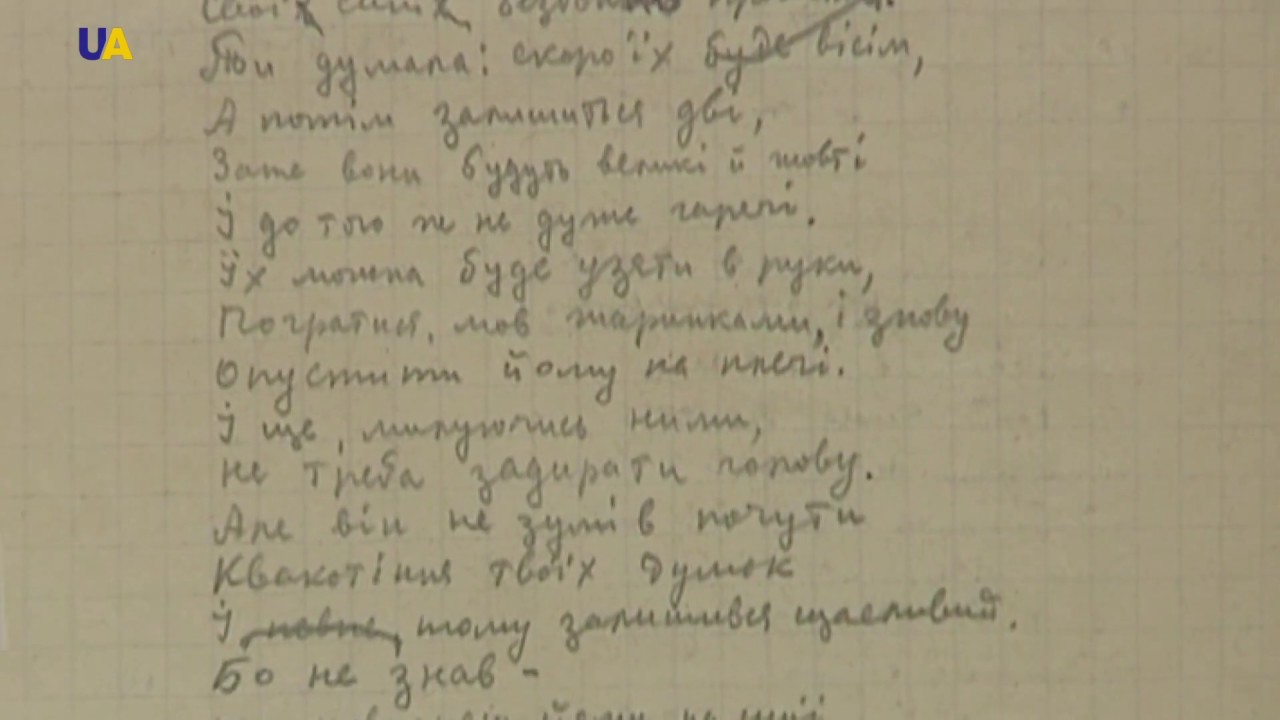 UA
Ти думала: скоро їх буде вісім,
А потім залишиться дві,
Зате вони будуть великі й жовті
І до того ж не дуже гарячі.
Їх можна буде узяти в руки,
Погратися, мов жаринками, і знову
Опустити йому на плечі.
І ще, милуючись ними,
не треба задирати голову.
Але він не зумів почути
Квакотіння твоїх думок
І, певне, тому залишився щасливий.
Бо не знав -
йому на